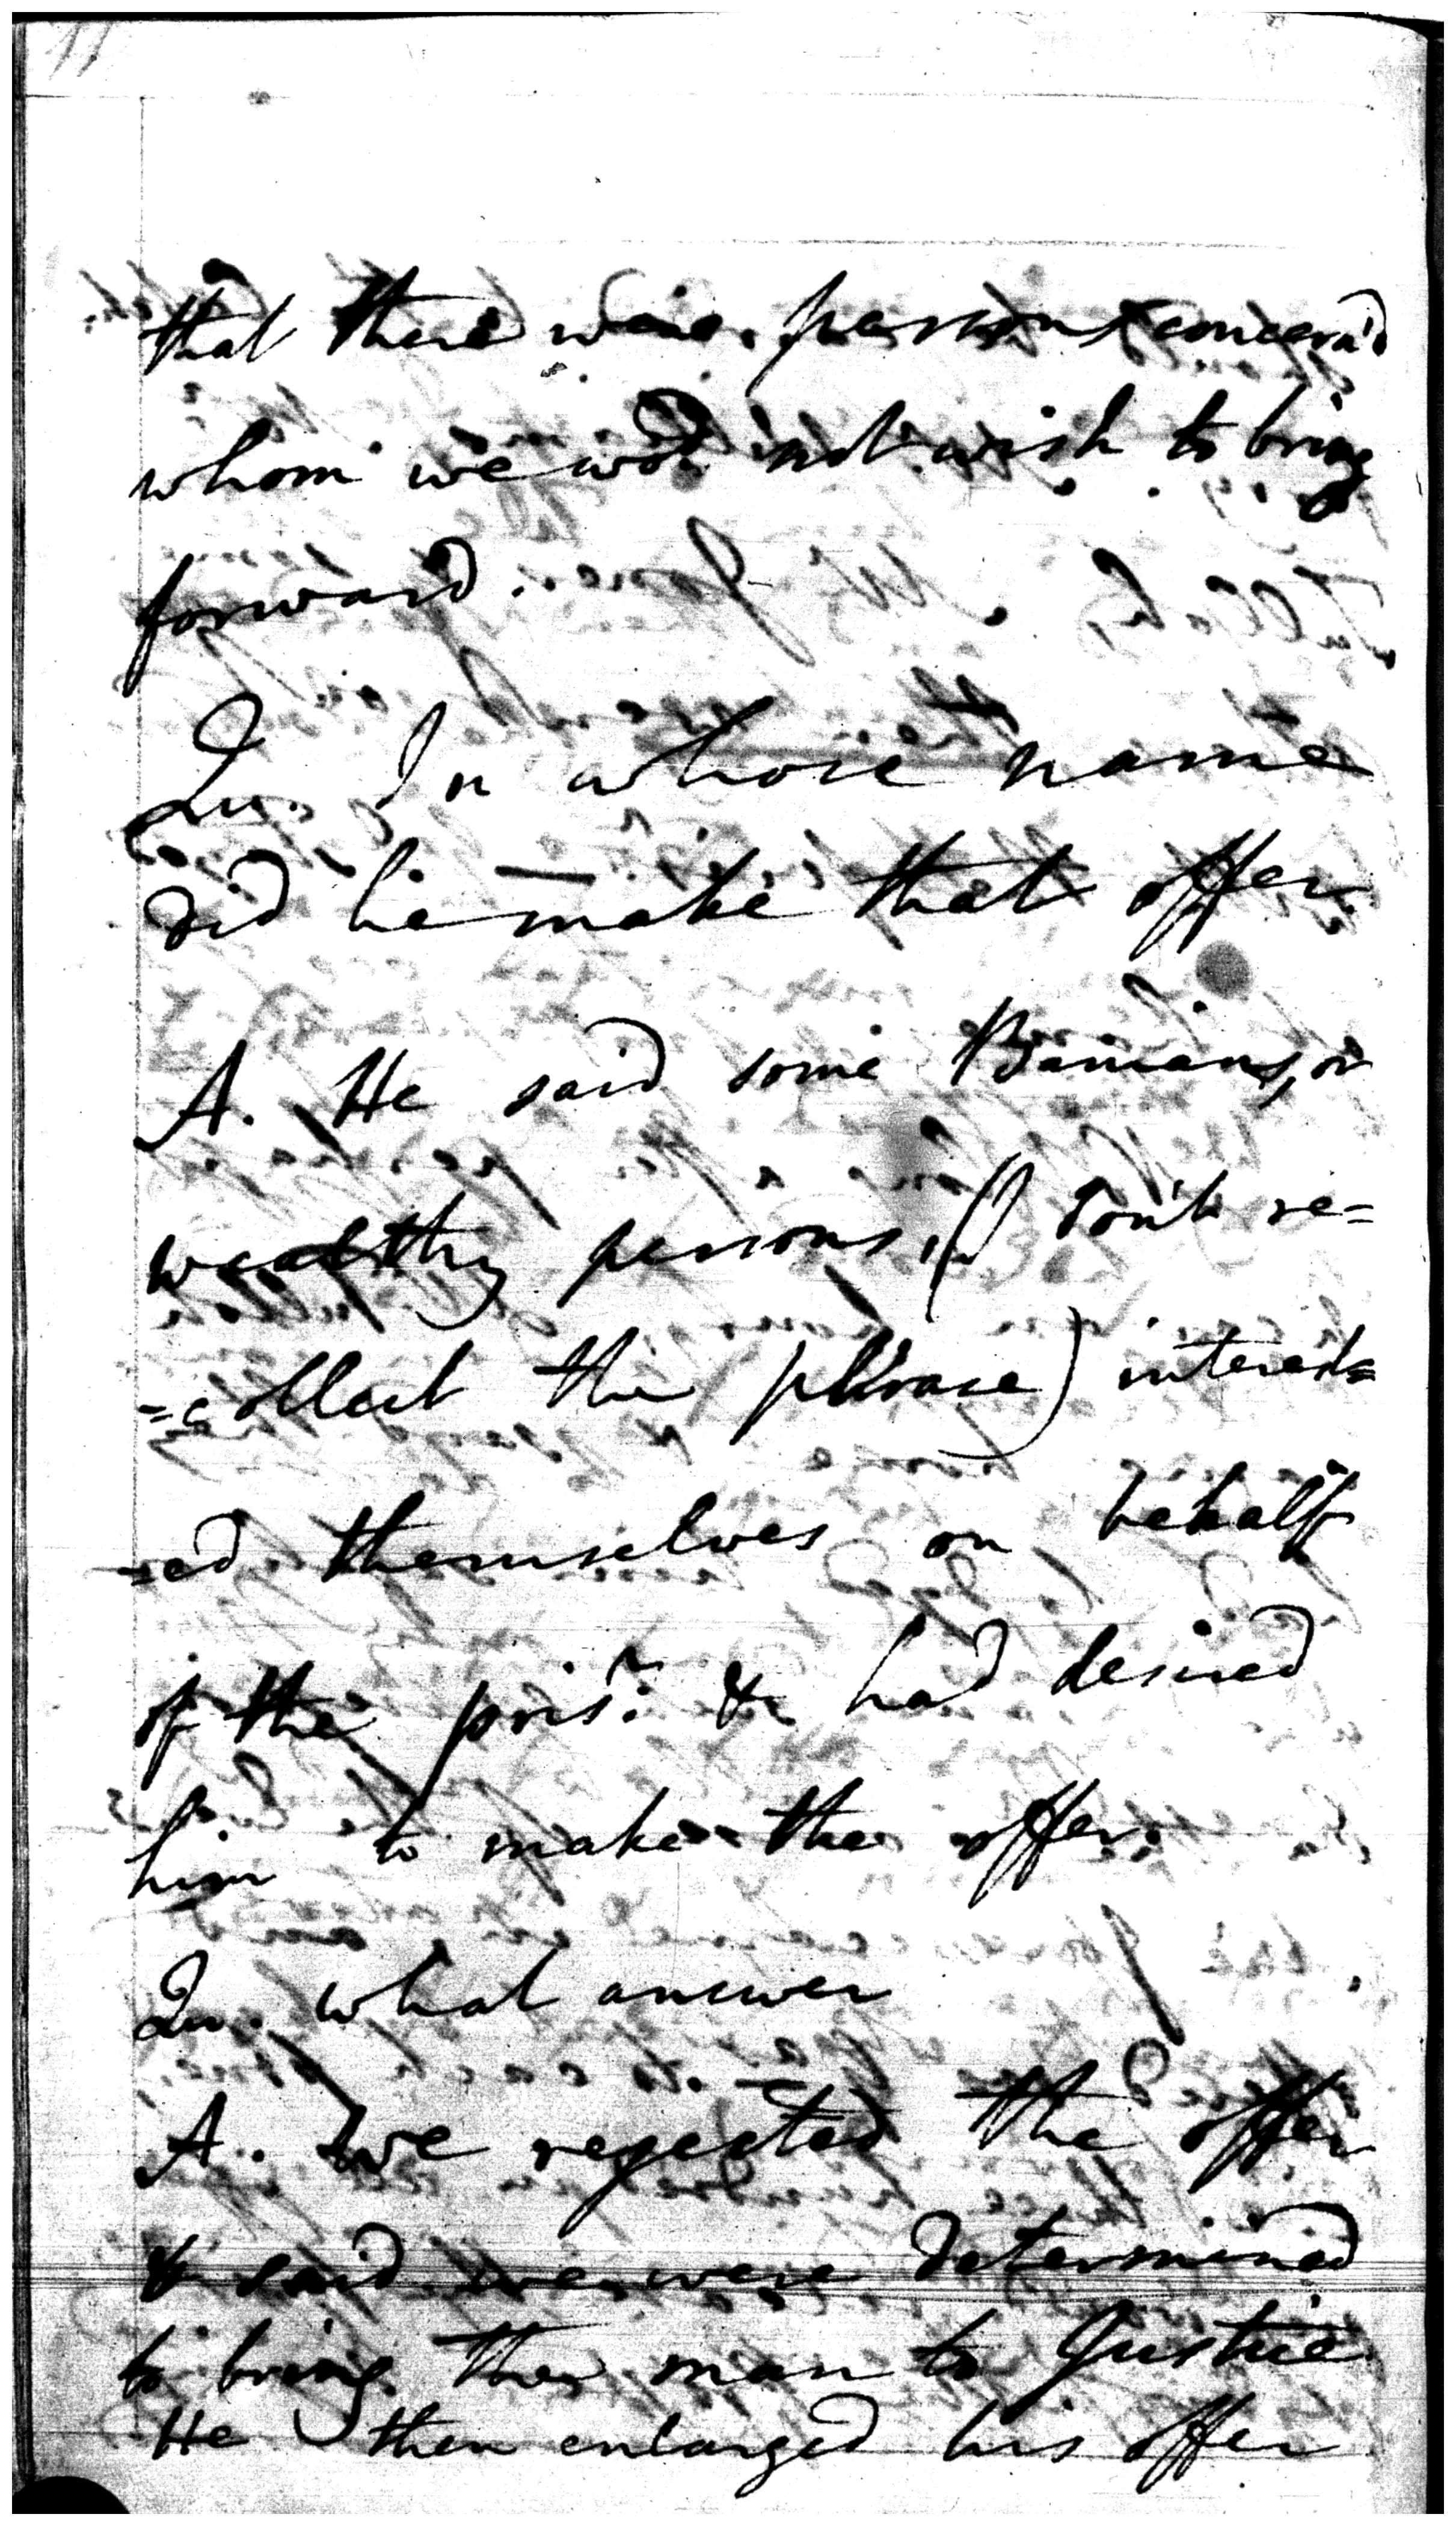 that there were persons concern'd
whom we wod. not wish to bring
forward.
Qu. In whose name
did he make that offer
A. He said some Banians, or
wealthy persons, (I don't re=
=collect the phrase) interest=
=ed themselves on behalf
of the prisr. & had desired
him to make the offer.
Qu. what answer
A. we rejected the offer
& said we were determined
to bring the man to Justice
He then enlarged his offer